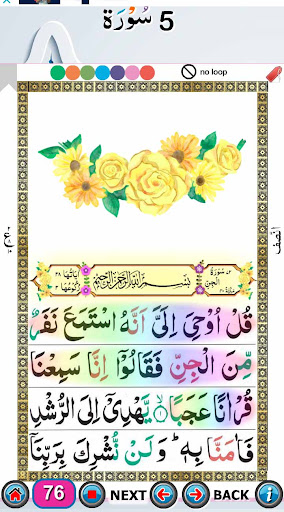 5 سُوْرَة
no loop
بِسْمِ اللّٰهِ الرَّحْمٰنِ الرَّحِيْمِ
قُلْ اُوْحِيَ اِلَيَّ اَنَّهُ اسْتَمَعَ نَفَرٌ
مِّنَ الْجِنِّ فَقَالُوْٓا اِنَّا سَمِعْنَا
قُرْاٰنًا عَجَبًا ۙ۱ يَّهْدِيْٓ اِلَى الرُّشْدِ
فَاٰمَنَّا بِهٖ ؕ وَلَنْ نُّشْرِكَ بِرَبِّنَآ
76 NEXT BACK